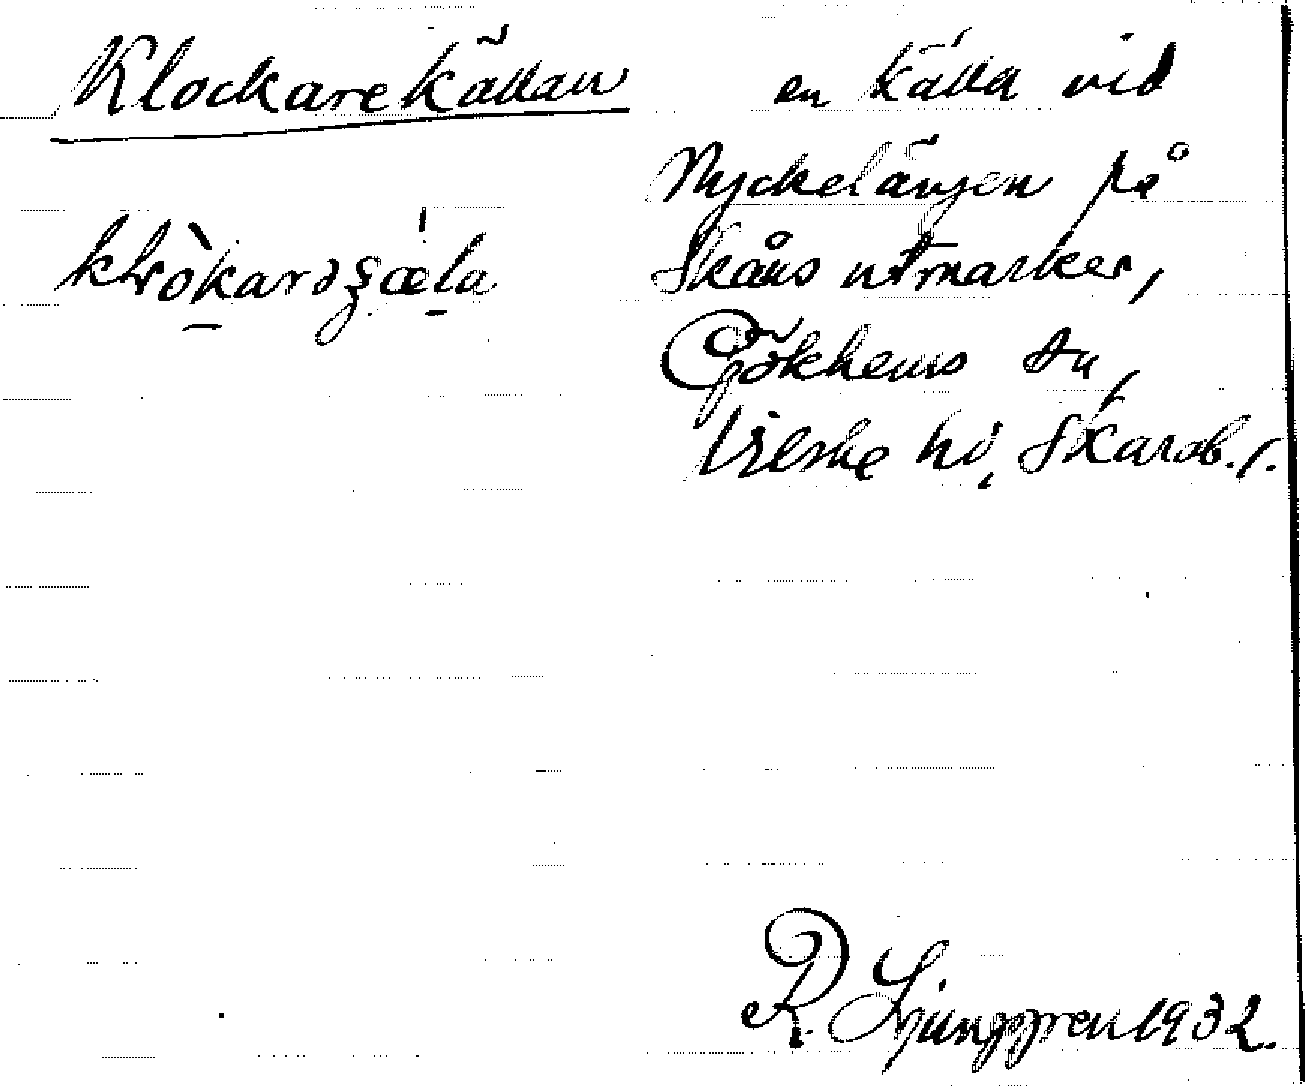 Klockarekällan en källa vid
Nyckelängen på
klòkarəʂæla Skåns utmarker,
Gökhems sn,
Vilske hd, Skarab. l.
R. Ljunggren 1932.